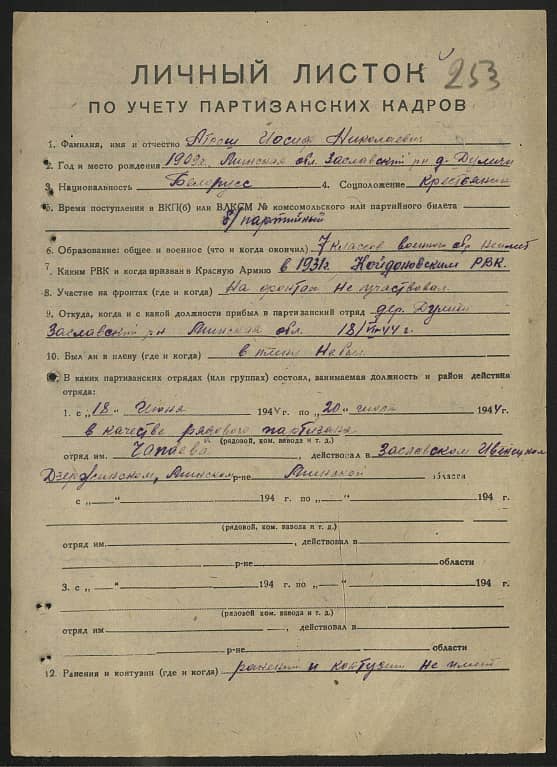 253
ЛИЧНЫЙ ЛИСТОК
ПО УЧЕТУ ПАРТИЗАНСКИХ КАДРОВ
1. Фамилия, имя и отчество Иосиф Николаевич
2. Год и место рождения 1909г. Минская обл. Заславский р-н д.
3. Национальность Белорусс 4. Соцположение крестьянин
5. Время поступления в ВКП(б) или ВЛКСМ № комсомольского или партийного билета
б/партийный
6. Образование: общее и военное (что и когда окончил) 7 классов военного обр. не имеет
7. Каким РВК и когда призван в Красную Армию в 1931г. Койдоновским РВК.
8. Участие на фронтах (где и когда) На фронтах не участвовал
9. Откуда, когда и с какой должности прибыл в партизанский отряд дер.
Заславский р-н Минская обл. 18/VI-44 г.
10. Был ли в плену (где и когда) в плену не был
11. В каких партизанских отрядах (или группах) состоял, занимаемая должность и район действия
отряда:
1. с „18" Июня 1944 г. по „20" июля 1944 г.
в качестве рядового партизана
(рядовой, ком. взвода и т. д.)
отряд им. Чапаева, действовал в Заславском Ивенецком
Дзержинском, Минском р-не Минской области
с „—"— 194 г. по „—"— 194 г.
(рядовой, ком. взвода и т. д.)
отряд им. , действовал в
р-не области
3. с „—"— 194 г. по „—"— 194 г.
(рядовой ком. взвода и т. д.)
отряд им. , действовал в
р-не области
12. Ранения и контузии (где и когда) ранений и контузий не имеет